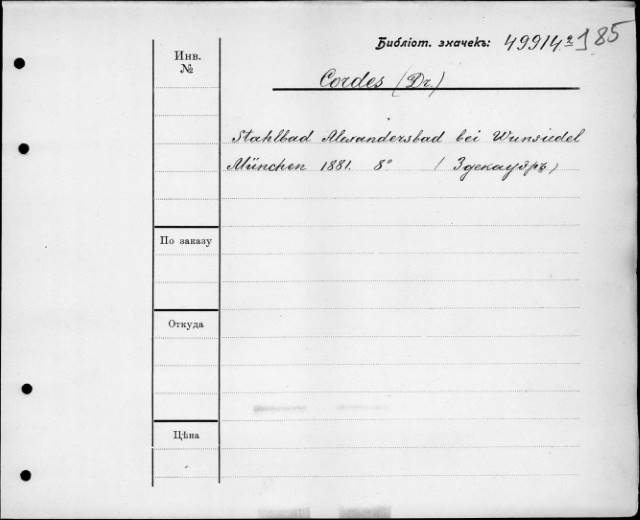 Библіот. значекъ: 49914² 185
Инв. №
Cordes (Dr.)
Stahlbad Alexandersbad bei Wunsiedel
München 1881. 8° (3 декаубръ)
По заказу
Откуда
Цѣна